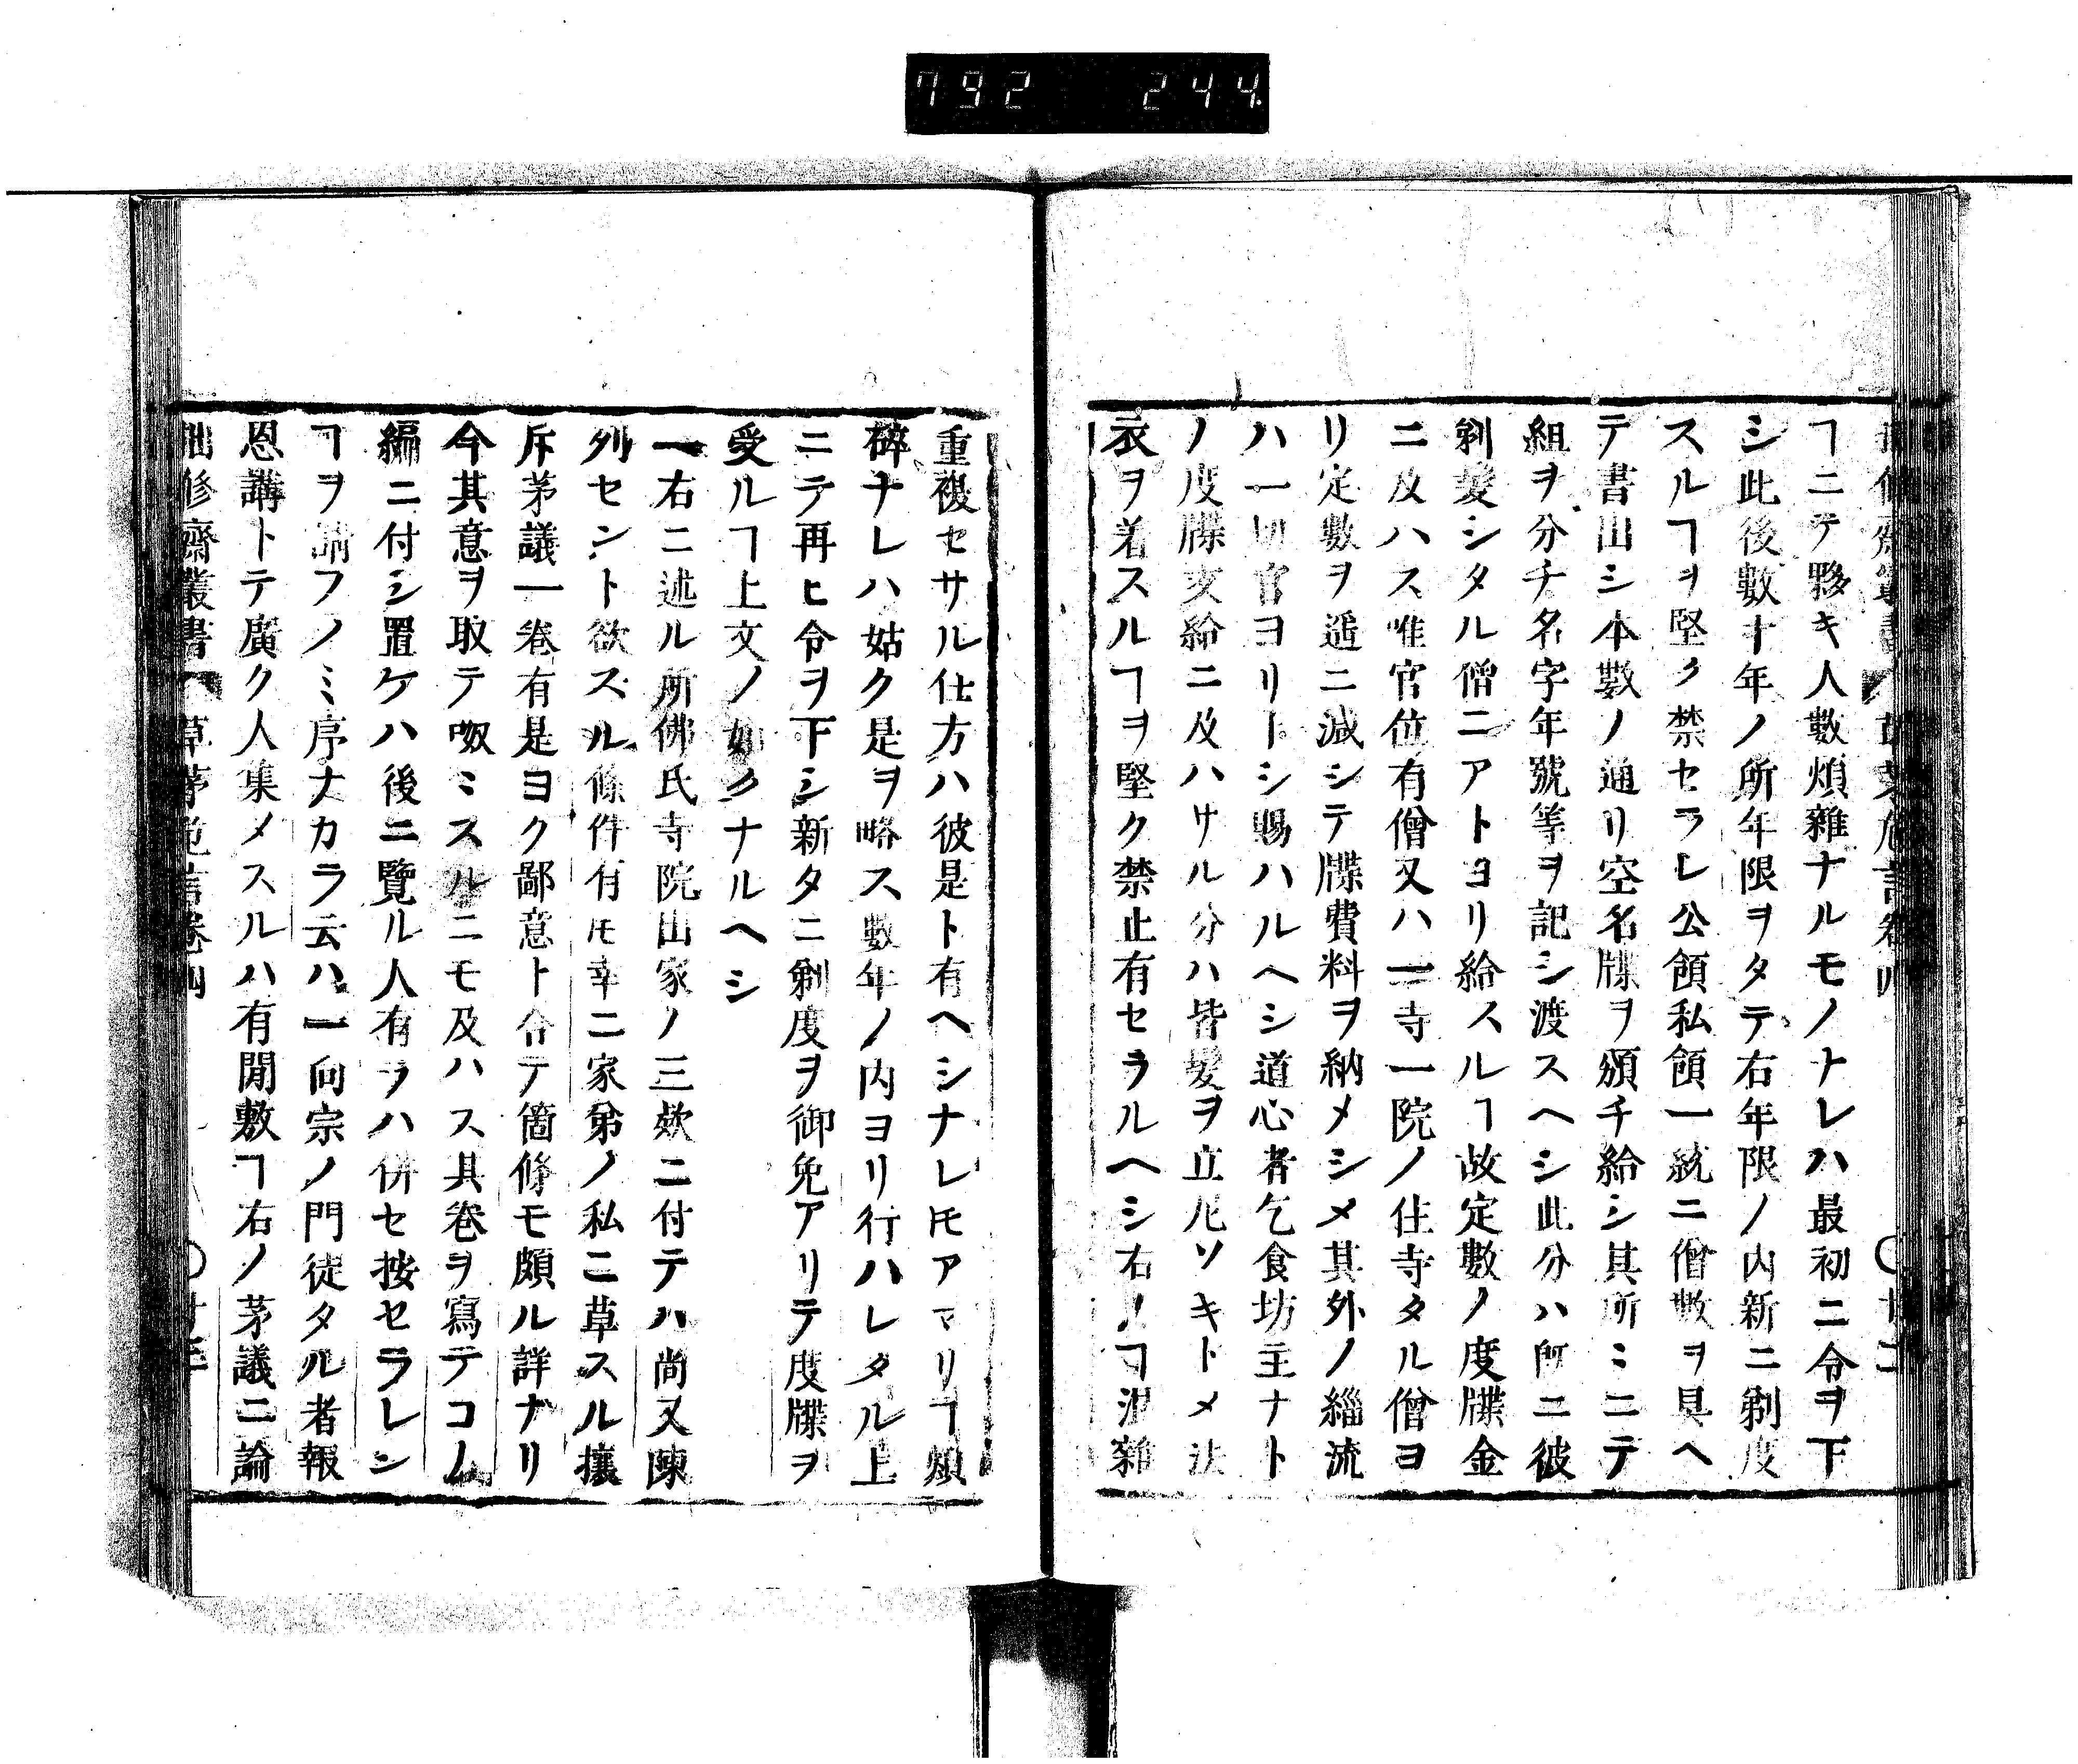 792 244
ヿニテ夥キ人數煩雜ナルモノナレハ最初ニ令ヲ下
シ此後數十年ノ所年限ヲタテ右年限ノ内新ニ剃度
スルヿヲ堅ク禁セラレ公領私領一統ニ僧數ヲ具ヘ
テ書出シ本數ノ通リ空名牒ヲ頒チ給シ其所ミニテ
組ヲ分チ名字年號等ヲ記シ渡スヘシ此分ハ所ニ彼
剃髮シタル僧ニアトヨリ給スルヿ故定數ノ度牒金
ニ及ハス唯官位有僧又ハ一寺一院ノ住寺タル僧ヨ
リ定數ヲ遞ニ減シテ牒費料ヲ納メシメ其外ノ緇流
ハ一切官ヨリトシ賜ハルヘシ道心者乞食坊主ナト
ノ度牒支給ニ及ハサル分ハ皆髮ヲ立尼ソキトメ法
衣ヲ着スルヿヲ堅ク禁止有セラルヘシ右ノヿ混雜
重複セサル仕方ハ彼是ト有ヘシナレ𪜈アマリヿ煩
碎ナレハ姑ク是ヲ略ス數年ノ内ヨリ行ハレタル上
ニテ再ヒ令ヲ下シ新タニ剃度ヲ御免アリテ度牒ヲ
受ルヿ上文ノ如クナルヘシ
一右ニ述ル所佛氏寺院出家ノ三欵ニ付テハ尚又陳
列セント欲スル條件有𪜈幸ニ家弟ノ私ニ草スル攘
斥茅議一卷有是ヨク鄙意ト合テ箇條モ頗ル詳ナリ
今其意ヲ取テ呶ミスルニモ及ハス其卷ヲ寫テコム
編ニ付シ置ケハ後ニ覽ル人有ラハ併セ按セラレシ
ヿヲ請フノミ序ナカラ云ハ一向宗ノ門徒タル者報
恩講トテ廣ク人集メスルハ有閒敷ヿ右ノ茅議ニ論
拙修齋叢書 草茅危言卷四